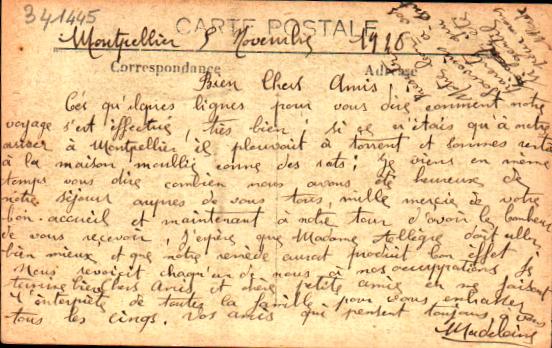 341445
CARTE POSTALE
Montpellier 5 Novembre 1920
Correspondance Adresse
Bien Chers Amis
Ces quelques lignes pour vous dire comment notre
voyage s'est effectué, très bien; si ce n'étais qu'à notre
arrivée à Montpellier il pleuvait à torrent et sommes rentré
à la maison mouillée comme des rats; Je viens en même
temps vous dire combien nous avons été heureuse de
notre séjour auprès de vous tous, mille mercie de votre
bon accueil et maintenant à notre tour d'avoir le bonheur
de vous recevoir, j'espère que Madame Allègre doit aller
bien mieux et que notre remède aurat produit bon effet
Nous revoicit chaqu'un de nous à nos occupations Je
termine biens chers Amis et chère petite amie en me faisant
l'interprète de toutes la famille pour vous embrasser
tous les cinqs. Vos amis qui pensent toujours à vous
Madeleine